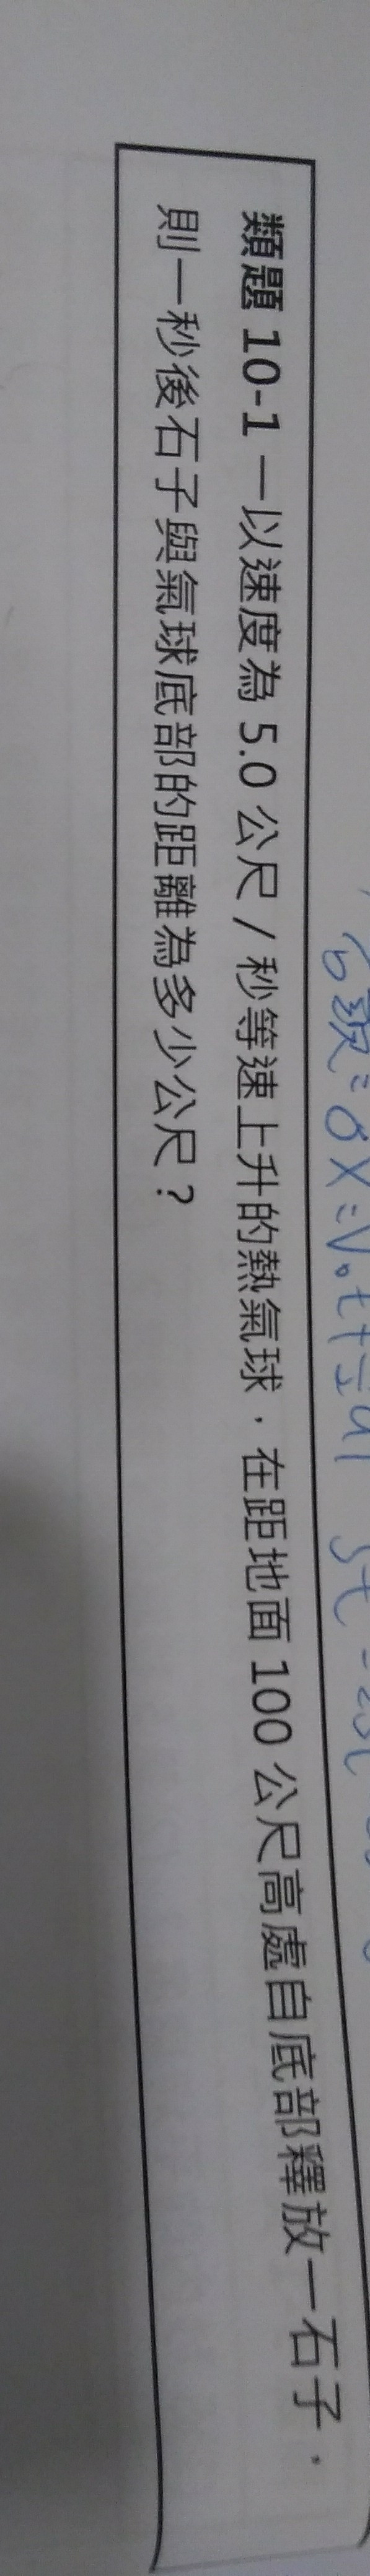 類題 10-1 一以速度為 5.0 公尺 / 秒等速上升的熱氣球，在距地面 100 公尺高處自底部釋放一石子，
則一秒後石子與氣球底部的距離為多少公尺？